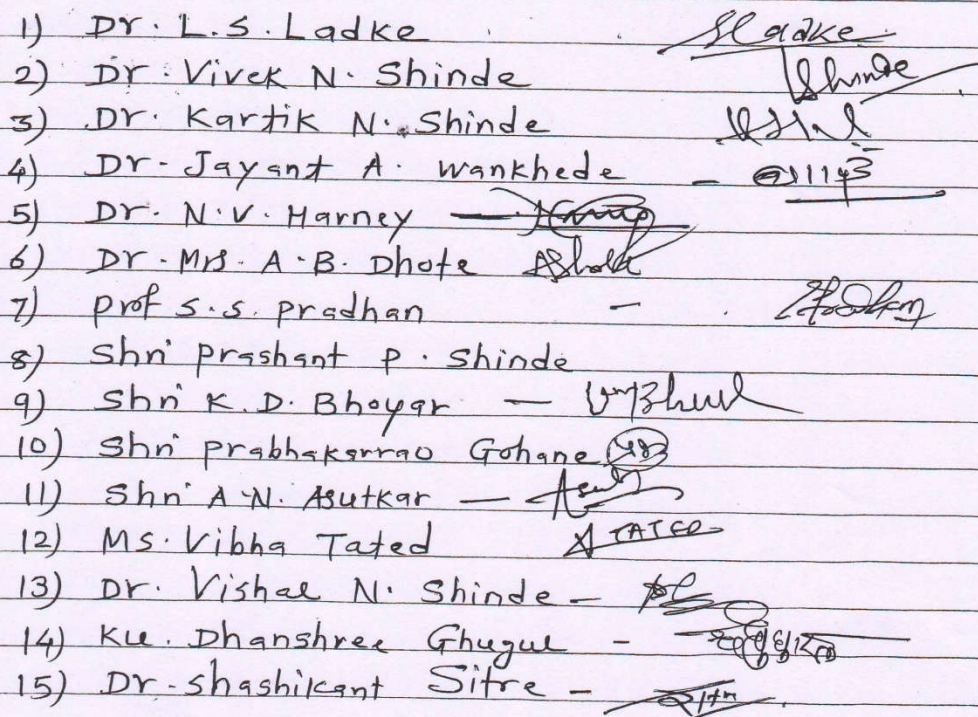 1) Dr. L.S. Ladke
2) Dr. Vivek N. Shinde
3) Dr. Kartik N. Shinde
4) Dr. Jayant A. Wankhede -
5) Dr. N.V. Harney —
6) Dr. Mrs. A.B. Dhote
7) Prof S.S. Pradhan -
8) Shri Prashant P. Shinde
9) Shri K.D. Bhoyar —
10) Shri Prabhakarrao Gohane
11) Shri A.N. Asutkar —
12) Ms. Vibha Tated TATED
13) Dr. Vishal N. Shinde -
14) Ku. Dhanshree Ghugul -
15) Dr. Shashikant Sitre -